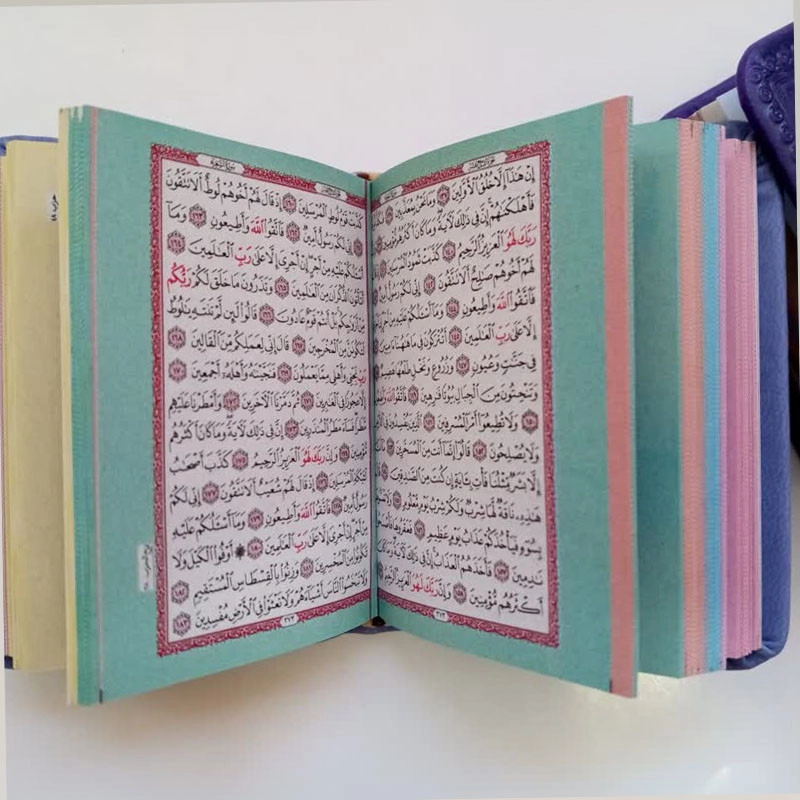 إِنْ هَٰذَا إِلَّا خُلُقُ الْأَوَّلِينَ ١٣٧ وَمَا نَحْنُ بِمُعَذَّبِينَ ١٣٨
فَأَهْلَكْنَٰهُمْ إِنَّ فِي ذَٰلِكَ لَآيَةً وَمَا كَانَ أَكْثَرُهُم مُّؤْمِنِينَ
رَبَّكَ لَهُوَ الْعَزِيزُ الرَّحِيمُ ١٤٠ كَذَّبَتْ ثَمُودُ الْمُرْسَلِينَ
لَهُمْ أَخُوهُمْ صَٰلِحٌ أَلَا تَتَّقُونَ ١٤٢ إِنِّي لَكُمْ رَسُولٌ أَمِينٌ
فَاتَّقُوا اللَّهَ وَأَطِيعُونِ ١٤٤ وَمَا أَسْـَٔلُكُمْ عَلَيْهِ مِنْ أَجْرٍ إِنْ أَجْرِيَ
إِلَّا عَلَىٰ رَبِّ الْعَٰلَمِينَ ١٤٥ أَتُتْرَكُونَ فِي مَا هَٰهُنَا ءَامِنِينَ
فِي جَنَّٰتٍ وَعُيُونٍ ١٤٧ وَزُرُوعٍ وَنَخْلٍ طَلْعُهَا هَضِيمٌ
وَتَنْحِتُونَ مِنَ الْجِبَالِ بُيُوتًا فَٰرِهِينَ ١٤٩ فَاتَّقُوا اللَّهَ وَأَطِيعُونِ
١٥٠ وَلَا تُطِيعُوا أَمْرَ الْمُسْرِفِينَ ١٥١ الَّذِينَ يُفْسِدُونَ فِي الْأَرْضِ
وَلَا يُصْلِحُونَ ١٥٢ قَالُوا إِنَّمَا أَنتَ مِنَ الْمُسَحَّرِينَ ١٥٣
إِلَّا بَشَرٌ مِّثْلُنَا فَأْتِ بِـَٔايَةٍ إِن كُنتَ مِنَ الصَّٰدِقِينَ
هَٰذِهِۦ نَاقَةٌ لَّهَا شِرْبٌ وَلَكُمْ شِرْبُ يَوْمٍ مَّعْلُومٍ ١٥٥
بِسُوءٍ فَيَأْخُذَكُمْ عَذَابُ يَوْمٍ عَظِيمٍ ١٥٦ فَعَقَرُوهَا فَأَصْبَحُوا
نَٰدِمِينَ ١٥٧ فَأَخَذَهُمُ الْعَذَابُ إِنَّ فِي ذَٰلِكَ لَآيَةً وَمَا كَانَ
أَكْثَرُهُم مُّؤْمِنِينَ ١٥٨ وَإِنَّ رَبَّكَ لَهُوَ الْعَزِيزُ الرَّحِيمُ
٣٧٣
سُورَةُ الشُّعَرَاءِ
كَذَّبَتْ قَوْمُ لُوطٍ الْمُرْسَلِينَ ١٦٠ إِذْ قَالَ لَهُمْ أَخُوهُمْ لُوطٌ أَلَا تَتَّقُونَ
١٦١ إِنِّي لَكُمْ رَسُولٌ أَمِينٌ ١٦٢ فَاتَّقُوا اللَّهَ وَأَطِيعُونِ ١٦٣ وَمَا
أَسْـَٔلُكُمْ عَلَيْهِ مِنْ أَجْرٍ إِنْ أَجْرِيَ إِلَّا عَلَىٰ رَبِّ الْعَٰلَمِينَ ١٦٤
أَتَأْتُونَ الذُّكْرَانَ مِنَ الْعَٰلَمِينَ ١٦٥ وَتَذَرُونَ مَا خَلَقَ لَكُمْ رَبُّكُم
مِّنْ أَزْوَٰجِكُم بَلْ أَنتُمْ قَوْمٌ عَادُونَ ١٦٦ قَالُوا لَئِن لَّمْ تَنتَهِ يَٰلُوطُ
لَتَكُونَنَّ مِنَ الْمُخْرَجِينَ ١٦٧ قَالَ إِنِّي لِعَمَلِكُم مِّنَ الْقَالِينَ ١٦٨
رَبِّ نَجِّنِي وَأَهْلِي مِمَّا يَعْمَلُونَ ١٦٩ فَنَجَّيْنَٰهُ وَأَهْلَهُۥٓ أَجْمَعِينَ ١٧٠
إِلَّا عَجُوزًا فِي الْغَٰبِرِينَ ١٧١ ثُمَّ دَمَّرْنَا الْآخَرِينَ ١٧٢ وَأَمْطَرْنَا عَلَيْهِم
مَّطَرًا فَسَاءَ مَطَرُ الْمُنذَرِينَ ١٧٣ إِنَّ فِي ذَٰلِكَ لَآيَةً وَمَا كَانَ أَكْثَرُهُم
مُّؤْمِنِينَ ١٧٤ وَإِنَّ رَبَّكَ لَهُوَ الْعَزِيزُ الرَّحِيمُ ١٧٥ كَذَّبَ أَصْحَٰبُ
لْـَٔيْكَةِ الْمُرْسَلِينَ ١٧٦ إِذْ قَالَ لَهُمْ شُعَيْبٌ أَلَا تَتَّقُونَ ١٧٧ إِنِّي لَكُمْ
رَسُولٌ أَمِينٌ ١٧٨ فَاتَّقُوا اللَّهَ وَأَطِيعُونِ ١٧٩ وَمَا أَسْـَٔلُكُمْ عَلَيْهِ
مِنْ أَجْرٍ إِنْ أَجْرِيَ إِلَّا عَلَىٰ رَبِّ الْعَٰلَمِينَ ١٨٠ أَوْفُوا الْكَيْلَ وَلَا
تَكُونُوا مِنَ الْمُخْسِرِينَ ١٨١ وَزِنُوا بِالْقِسْطَاسِ الْمُسْتَقِيمِ ١٨٢
وَلَا تَبْخَسُوا النَّاسَ أَشْيَاءَهُمْ وَلَا تَعْثَوْا فِي الْأَرْضِ مُفْسِدِينَ ١٨٣
٣٧٤